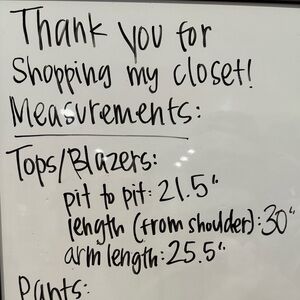 Thank you for
Shopping my closet!
Measurements:
Tops/Blazers:
pit to pit: 21.5"
length (from shoulder): 30"
arm length: 25.5"
Pants: